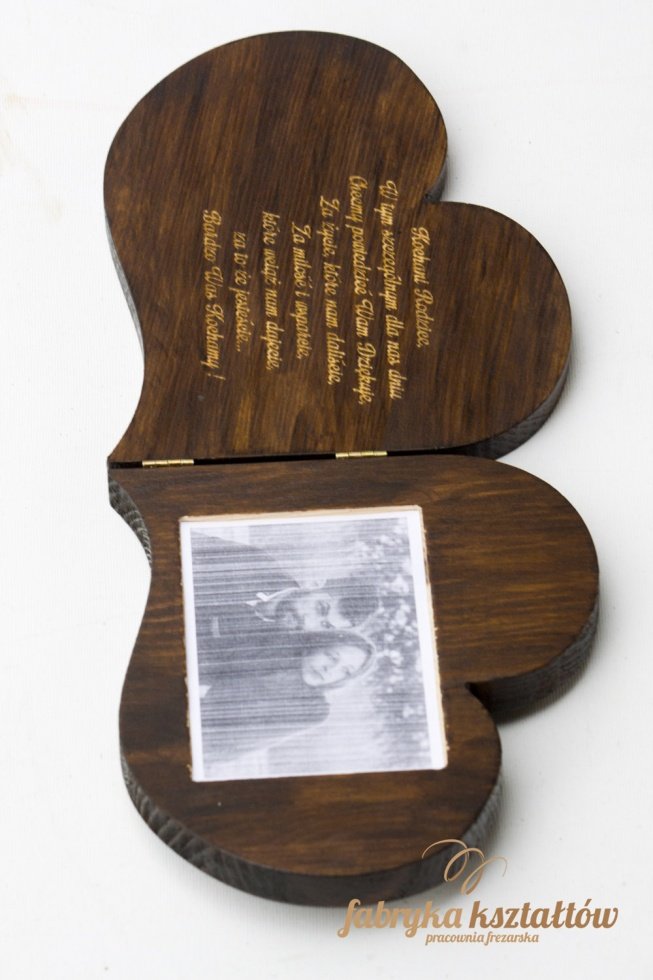 Kochani Rodzice,
W tym szczególnym dla nas dniu
Chcemy powiedzieć Wam Dziękuję,
Za życie, które nam daliście,
Za miłość i wsparcie,
które wciąż nam dajecie,
za to że jesteście...
Bardzo Was Kochamy !
fabryka kształtów
pracownia frezarska